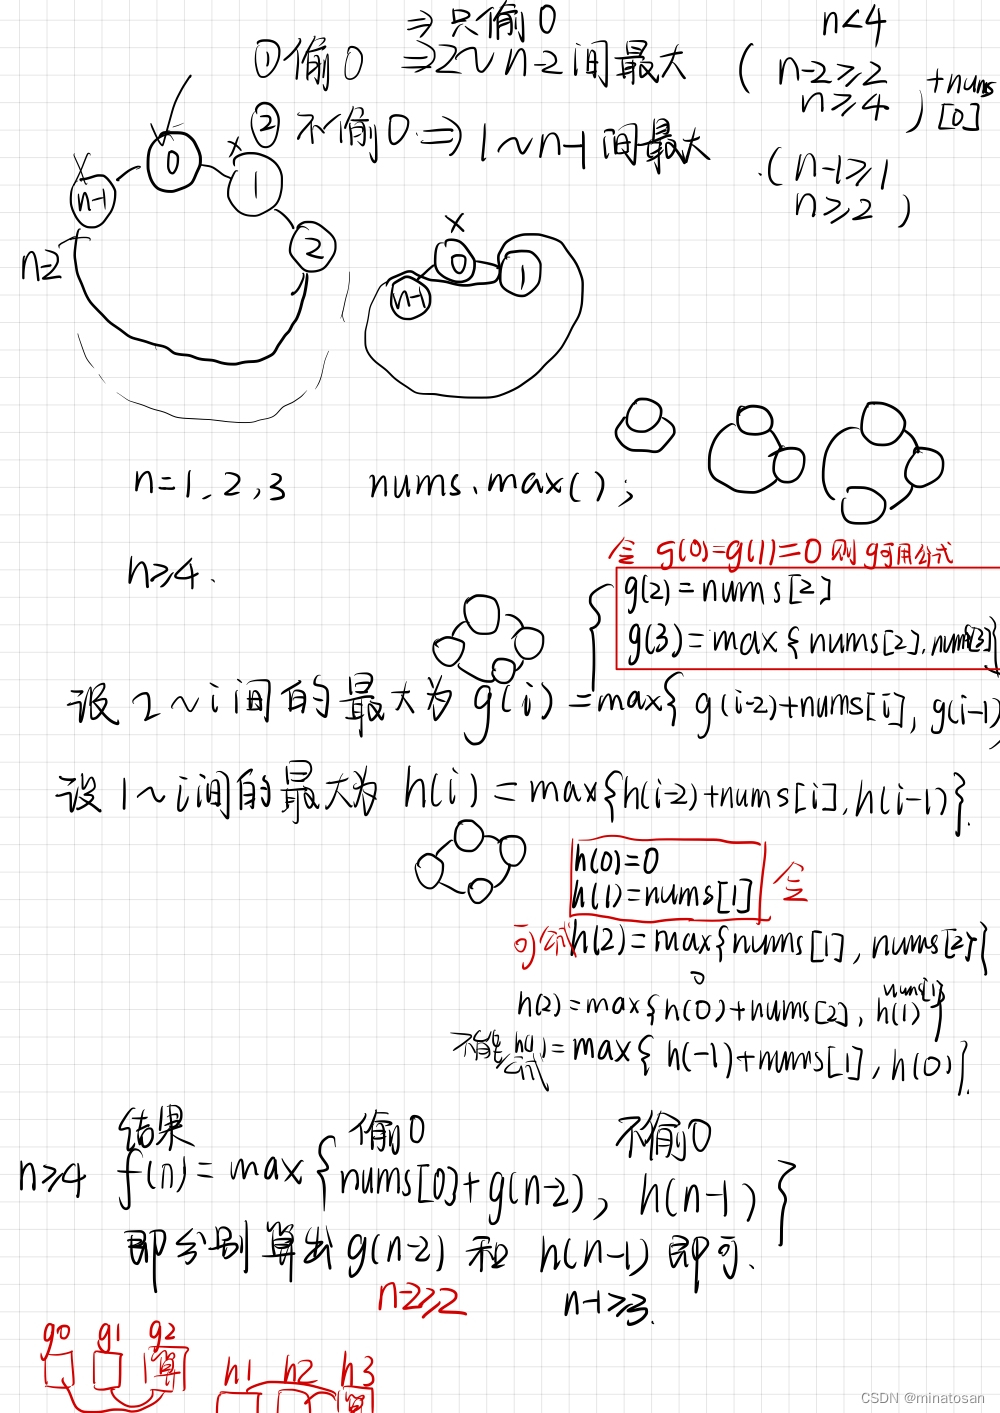 ⇒只偷0
n<4
①偷0 ⇒2~n-2间最大 (n-2≥2 n≥4) +nums[0]
②不偷0⇒1~n-1间最大 (n-1≥1 n≥2)
0
1
2
n-1
n-2
x
0
1
n-1
n=1,2,3 nums.max();
n≥4.
令 g(0)=g(1)=0 则g可用公式
g(2)=nums[2]
g(3)=max{nums[2],nums[3]}
设2~i间的最大为g(i)=max{g(i-2)+nums[i],g(i-1)
设1~i间的最大为 h(i)=max{h(i-2)+nums[i],h(i-1)}.
h(0)=0
h(1)=nums[1] 令
可公式 h(2)=max{nums[1],nums[2]}
0 nums[1]
h(2)=max{h(0)+nums[2],h(1)}
不能公式 h(1)=max{h(-1)+nums[1],h(0)}.
结果 偷0 不偷0
n≥4 f(n)=max{nums[0]+g(n-2), h(n-1)}
即分别算出g(n-2)和h(n-1)即可.
n-2≥2 n-1≥3.
g0 g1 g2
算
h1 h2 h3
算
CSDN @minatosan